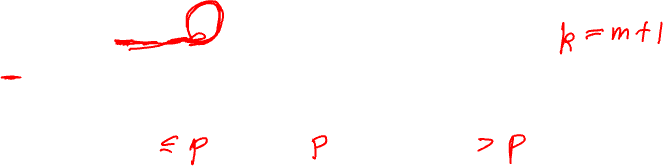 k = m + 1
≤ p p > p